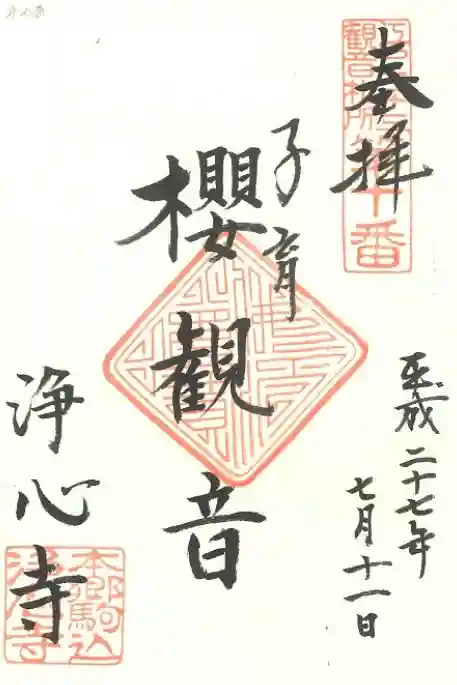 奉拝
江戸三十三
観音札所第十番
平成二十七年
七月十一日
子育
櫻観音
浄心寺
本郷駒込
浄心寺